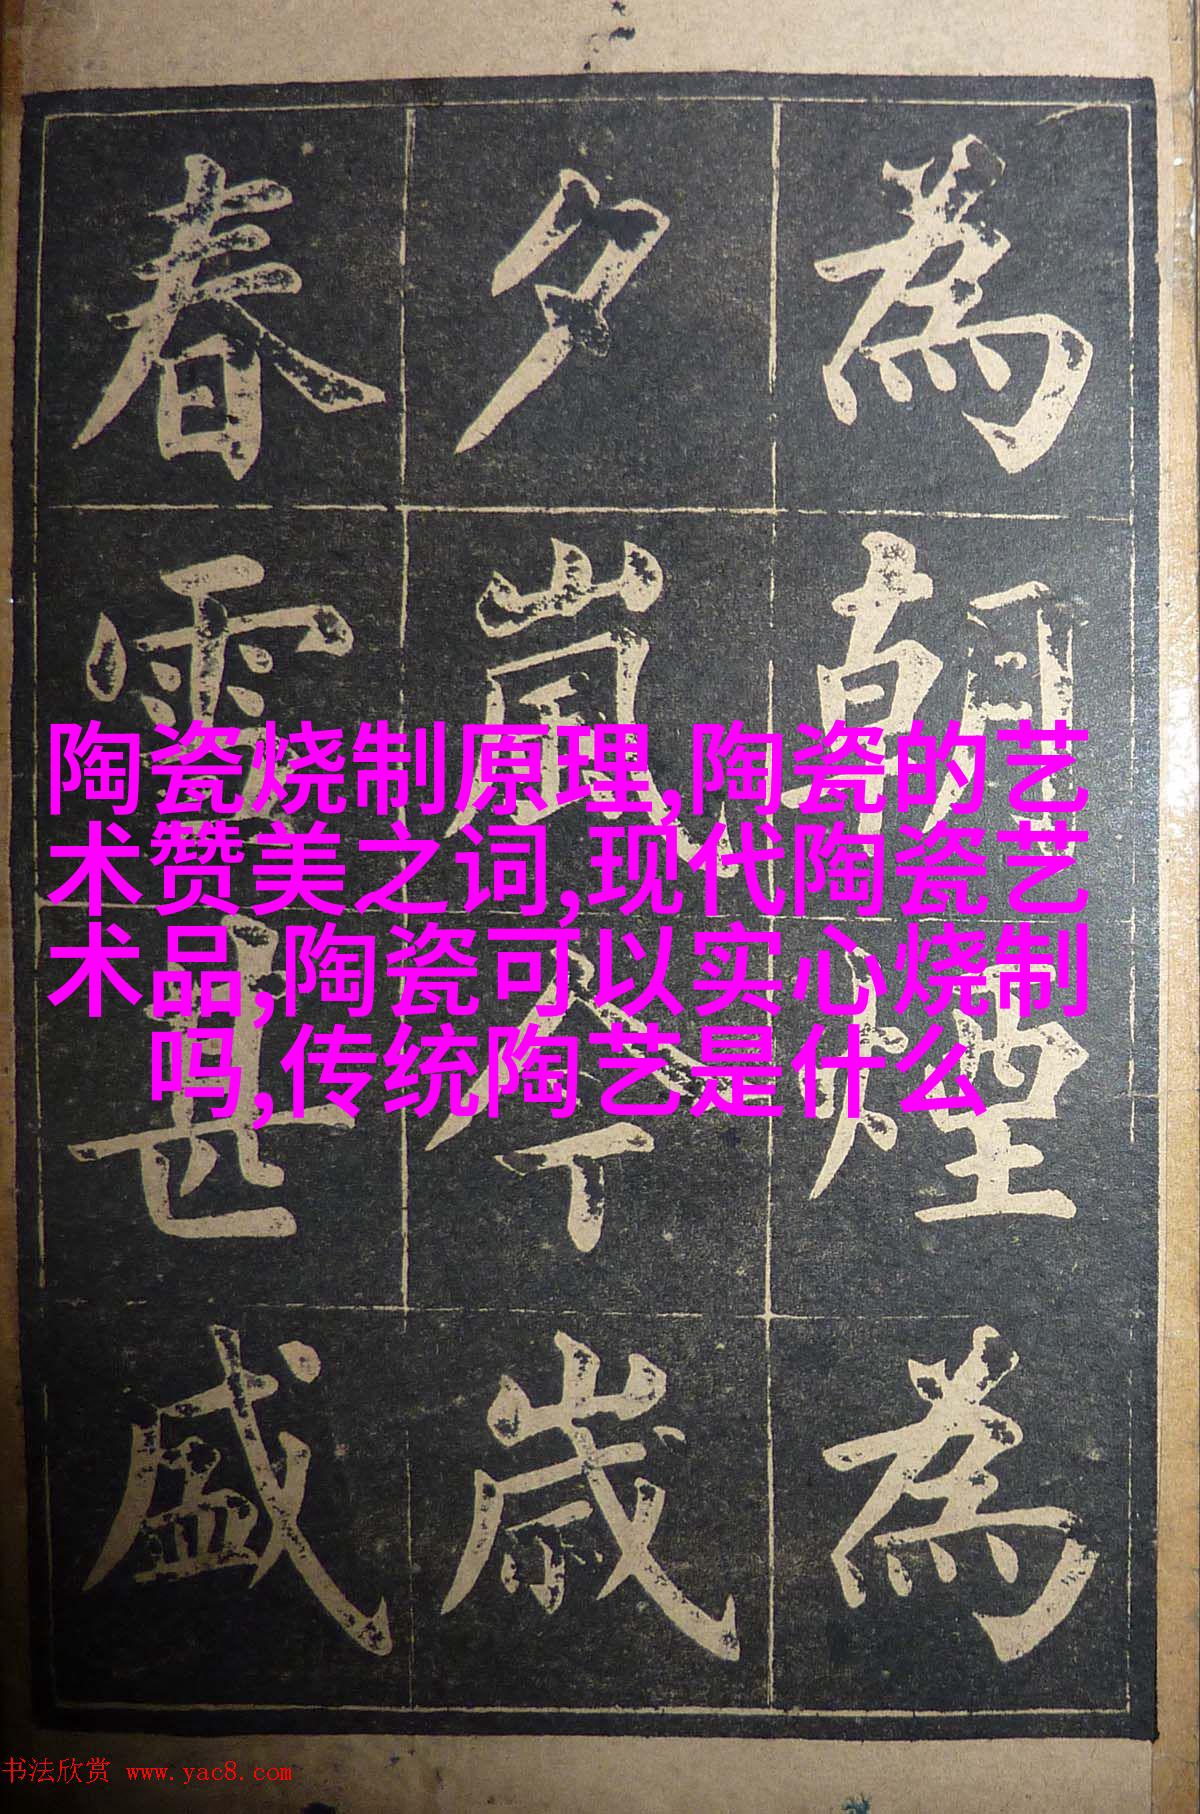 為朝煙為
夕嵐今歲
春雪甚盛
陶瓷烧制原理,陶瓷的艺
术赞美之词,现代陶瓷艺
术品,陶瓷可以实心烧制
吗,传统陶艺是什么
书法欣赏 www.yac8.com